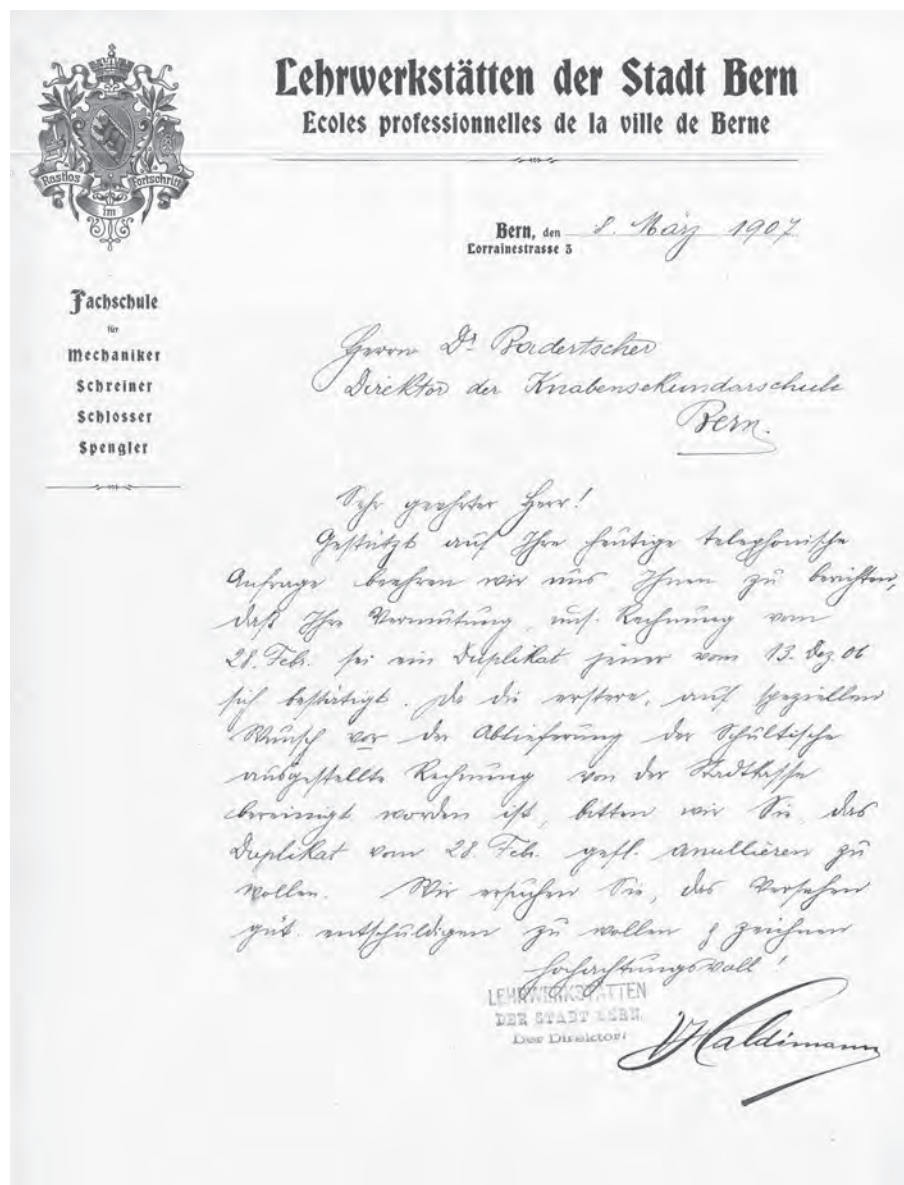 Lehrwerkstätten der Stadt Bern
Ecoles professionnelles de la ville de Berne
Rastlos im Fortschritt
Bern, den 8. März 1907
Lorrainestrasse 3
Fachschule
für
Mechaniker
Schreiner
Schlosser
Spengler
Herrn Dr Badertscher
Direktor der Knabensekundarschule
Bern.
Sehr geehrter Herr!
Gestützt auf Ihre heutige telephonische
Anfrage beehren wir uns Ihnen zu berichten,
daß Ihre Vermutung, uns. Rechnung vom
28. Feb. sei ein Duplikat jener vom 13. Dez. 06
sich bestätigt. Da die erstere, auf speziellen
Wunsch vor der Ablieferung der Schultische
ausgestellte Rechnung von der Stadtkasse
bereinigt worden ist, bitten wir Sie, das
Duplikat vom 28. Feb. gefl. anullieren zu
wollen. Wir ersuchen Sie, das Versehen
güt. entschuldigen zu wollen & zeichnen
Hochachtungsvoll!
LEHRWERKSTÄTTEN
DER STADT BERN
Der Direktor:
Haldimann